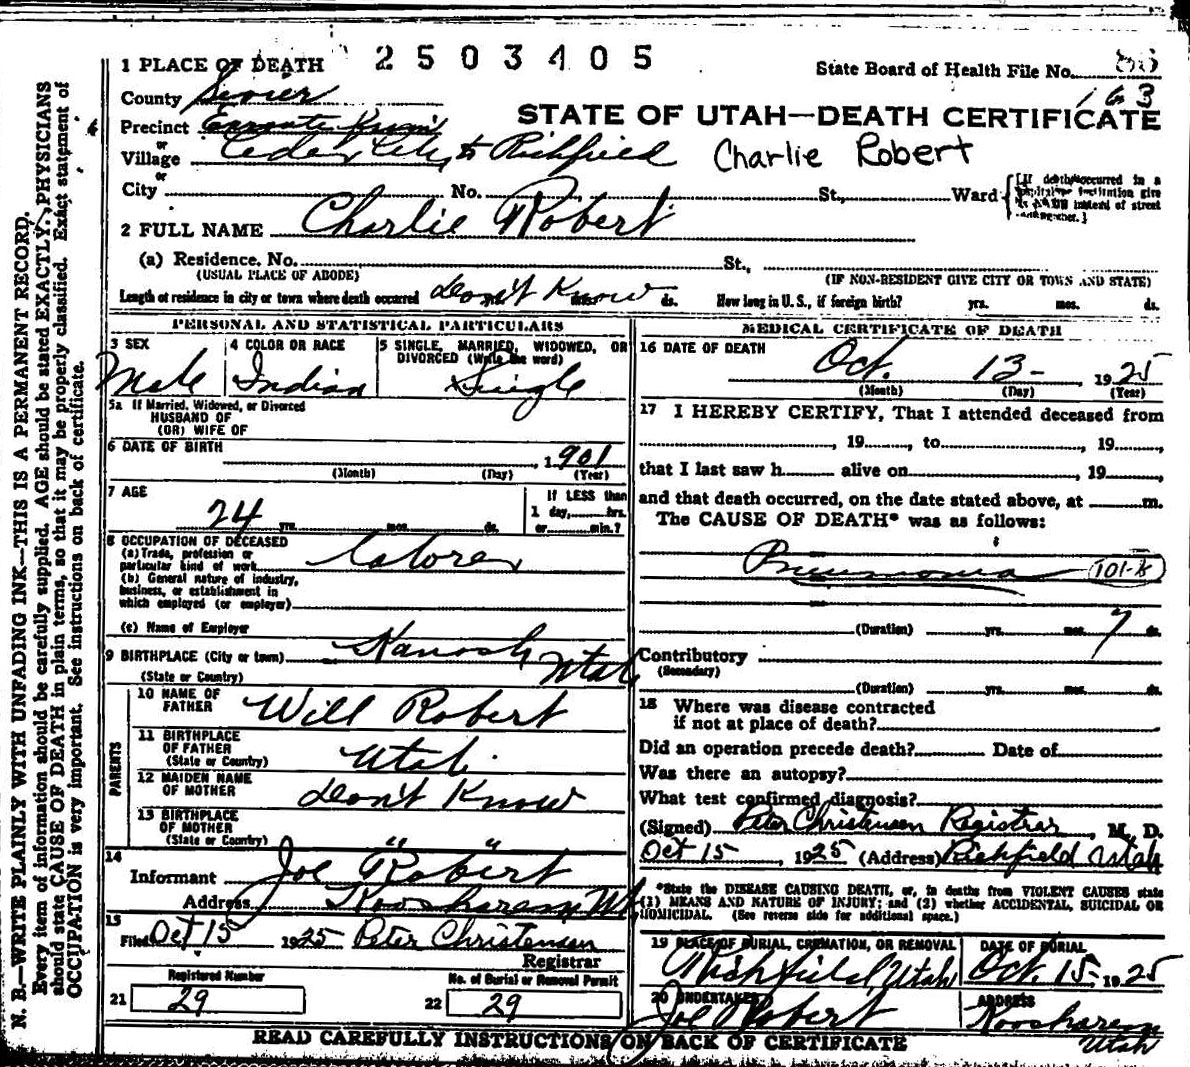 2503405
1 PLACE OF DEATH
State Board of Health File No. 86
163
County Sevier
STATE OF UTAH—DEATH CERTIFICATE
Precinct Enroute from
or
Village Cedar City to Richfield Charlie Robert
or
City No. St., Ward
[If death occurred in a
hospital or institution give
its NAME instead of street
and number.]
2 FULL NAME Charlie Robert
(a) Residence, No. St.,
(USUAL PLACE OF ABODE) (IF NON-RESIDENT GIVE CITY OR TOWN AND STATE)
Length of residence in city or town where death occurred Don't Know ds. How long in U. S., if foreign birth? yrs. mos. ds.
PERSONAL AND STATISTICAL PARTICULARS
3 SEX 4 COLOR OR RACE 5 SINGLE, MARRIED, WIDOWED, OR
DIVORCED (Write the word)
Male Indian Single
5a If Married, Widowed, or Divorced
HUSBAND OF
(OR) WIFE OF
6 DATE OF BIRTH
1901
(Month) (Day) (Year)
7 AGE
24 yrs. mos. ds.
If LESS than
1 day, hrs.
or min.?
8 OCCUPATION OF DECEASED
(a) Trade, profession or
particular kind of work Laborer
(b) General nature of industry,
business, or establishment in
which employed (or employer)
(c) Name of Employer
9 BIRTHPLACE (City or town) Kanosh Utah
(State or Country)
PARENTS
10 NAME OF
FATHER Will Robert
11 BIRTHPLACE
OF FATHER
(State or Country) Utah.
12 MAIDEN NAME
OF MOTHER Don't Know
13 BIRTHPLACE
OF MOTHER
(State or Country) " "
14
Informant Joe Robert
Address Koosharem Ut
15
Filed Oct 15 1925 Peter Christensen
Registrar
Registered Number No. of Burial or Removal Permit
21 29 22 29
MEDICAL CERTIFICATE OF DEATH
16 DATE OF DEATH
Oct. 13- , 1925
(Month) (Day) (Year)
17 I HEREBY CERTIFY, That I attended deceased from
, 19 , to , 19 ,
that I last saw h alive on , 19 ,
and that death occurred, on the date stated above, at m.
The CAUSE OF DEATH* was as follows:
Pneumonia
(Duration) yrs. mos. 7 ds.
Contributory
(Secondary)
(Duration) yrs. mos. ds.
18 Where was disease contracted
if not at place of death?
Did an operation precede death? Date of
Was there an autopsy?
What test confirmed diagnosis?
(Signed) Peter Christensen Registrar, M. D.
Oct 15 , 1925 (Address) Richfield Utah
*State the DISEASE CAUSING DEATH, or, in deaths from VIOLENT CAUSES state
(1) MEANS AND NATURE OF INJURY; and (2) whether ACCIDENTAL, SUICIDAL OR
HOMICIDAL. (See reverse side for additional space.)
19 PLACE OF BURIAL, CREMATION, OR REMOVAL DATE OF BURIAL
Richfield, Utah Oct. 15- 1925
20 UNDERTAKER ADDRESS
Joe Robert Koosharem
Utah
READ CAREFULLY INSTRUCTIONS ON BACK OF CERTIFICATE
N. B.—WRITE PLAINLY WITH UNFADING INK—THIS IS A PERMANENT RECORD.
Every item of information should be carefully supplied. AGE should be stated EXACTLY. PHYSICIANS
should state CAUSE OF DEATH in plain terms, so that it may be properly classified. Exact statement of
OCCUPATION is very important. See instructions on back of certificate.